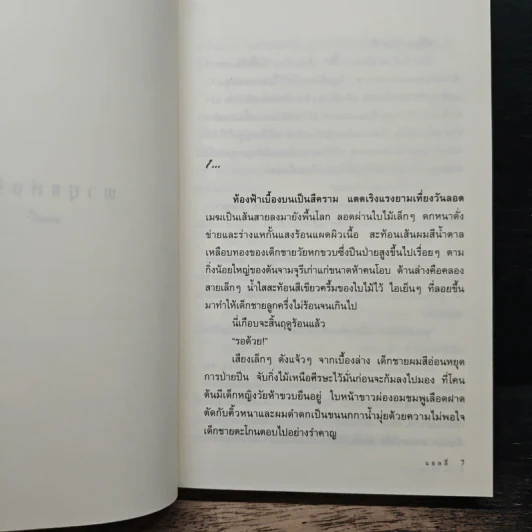 1...
ท้องฟ้าเบื้องบนเป็นสีคราม แดดเริงแรงยามเที่ยงวันลอด
เมฆเป็นเส้นสายลงมายังพื้นโลก ลอดผ่านใบไม้เล็กๆ ตกหนาดั่ง
ข่ายและร่างแหกั้นแสงร้อนแผดผิวเนื้อ สะท้อนเส้นผมสีน้ำตาล
เหลือบทองของเด็กชายวัยหกขวบซึ่งปีนป่ายสูงขึ้นไปเรื่อยๆ ตาม
กิ่งน้อยใหญ่ของต้นจามจุรีเก่าแก่ขนาดห้าคนโอบ ด้านล่างคือคลอง
สายเล็กๆ น้ำใสสะท้อนสีเขียวครึ้มของใบไม้ไว้ ไอเย็นๆ ที่ลอยขึ้น
มาทำให้เด็กชายลูกครึ่งไม่ร้อนจนเกินไป
นี่เกือบจะสิ้นฤดูร้อนแล้ว
“รอด้วย!”
เสียงเล็กๆ ดังแจ้วๆ จากเบื้องล่าง เด็กชายผมสีอ่อนหยุด
การป่ายปีน จับกิ่งไม้เหนือศีรษะไว้มั่นก่อนจะก้มลงไปมอง ที่โคน
ต้นมีเด็กหญิงวัยห้าขวบยืนอยู่ ใบหน้าขาวผ่องอมชมพูเลือดฝาด
ตัดกับคิ้วหนาและผมดำดกเป็นขนนกกาน้ำมุ่ยด้วยความไม่พอใจ
เด็กชายตะโกนตอบไปอย่างรำคาญ
แอลลี่ 7